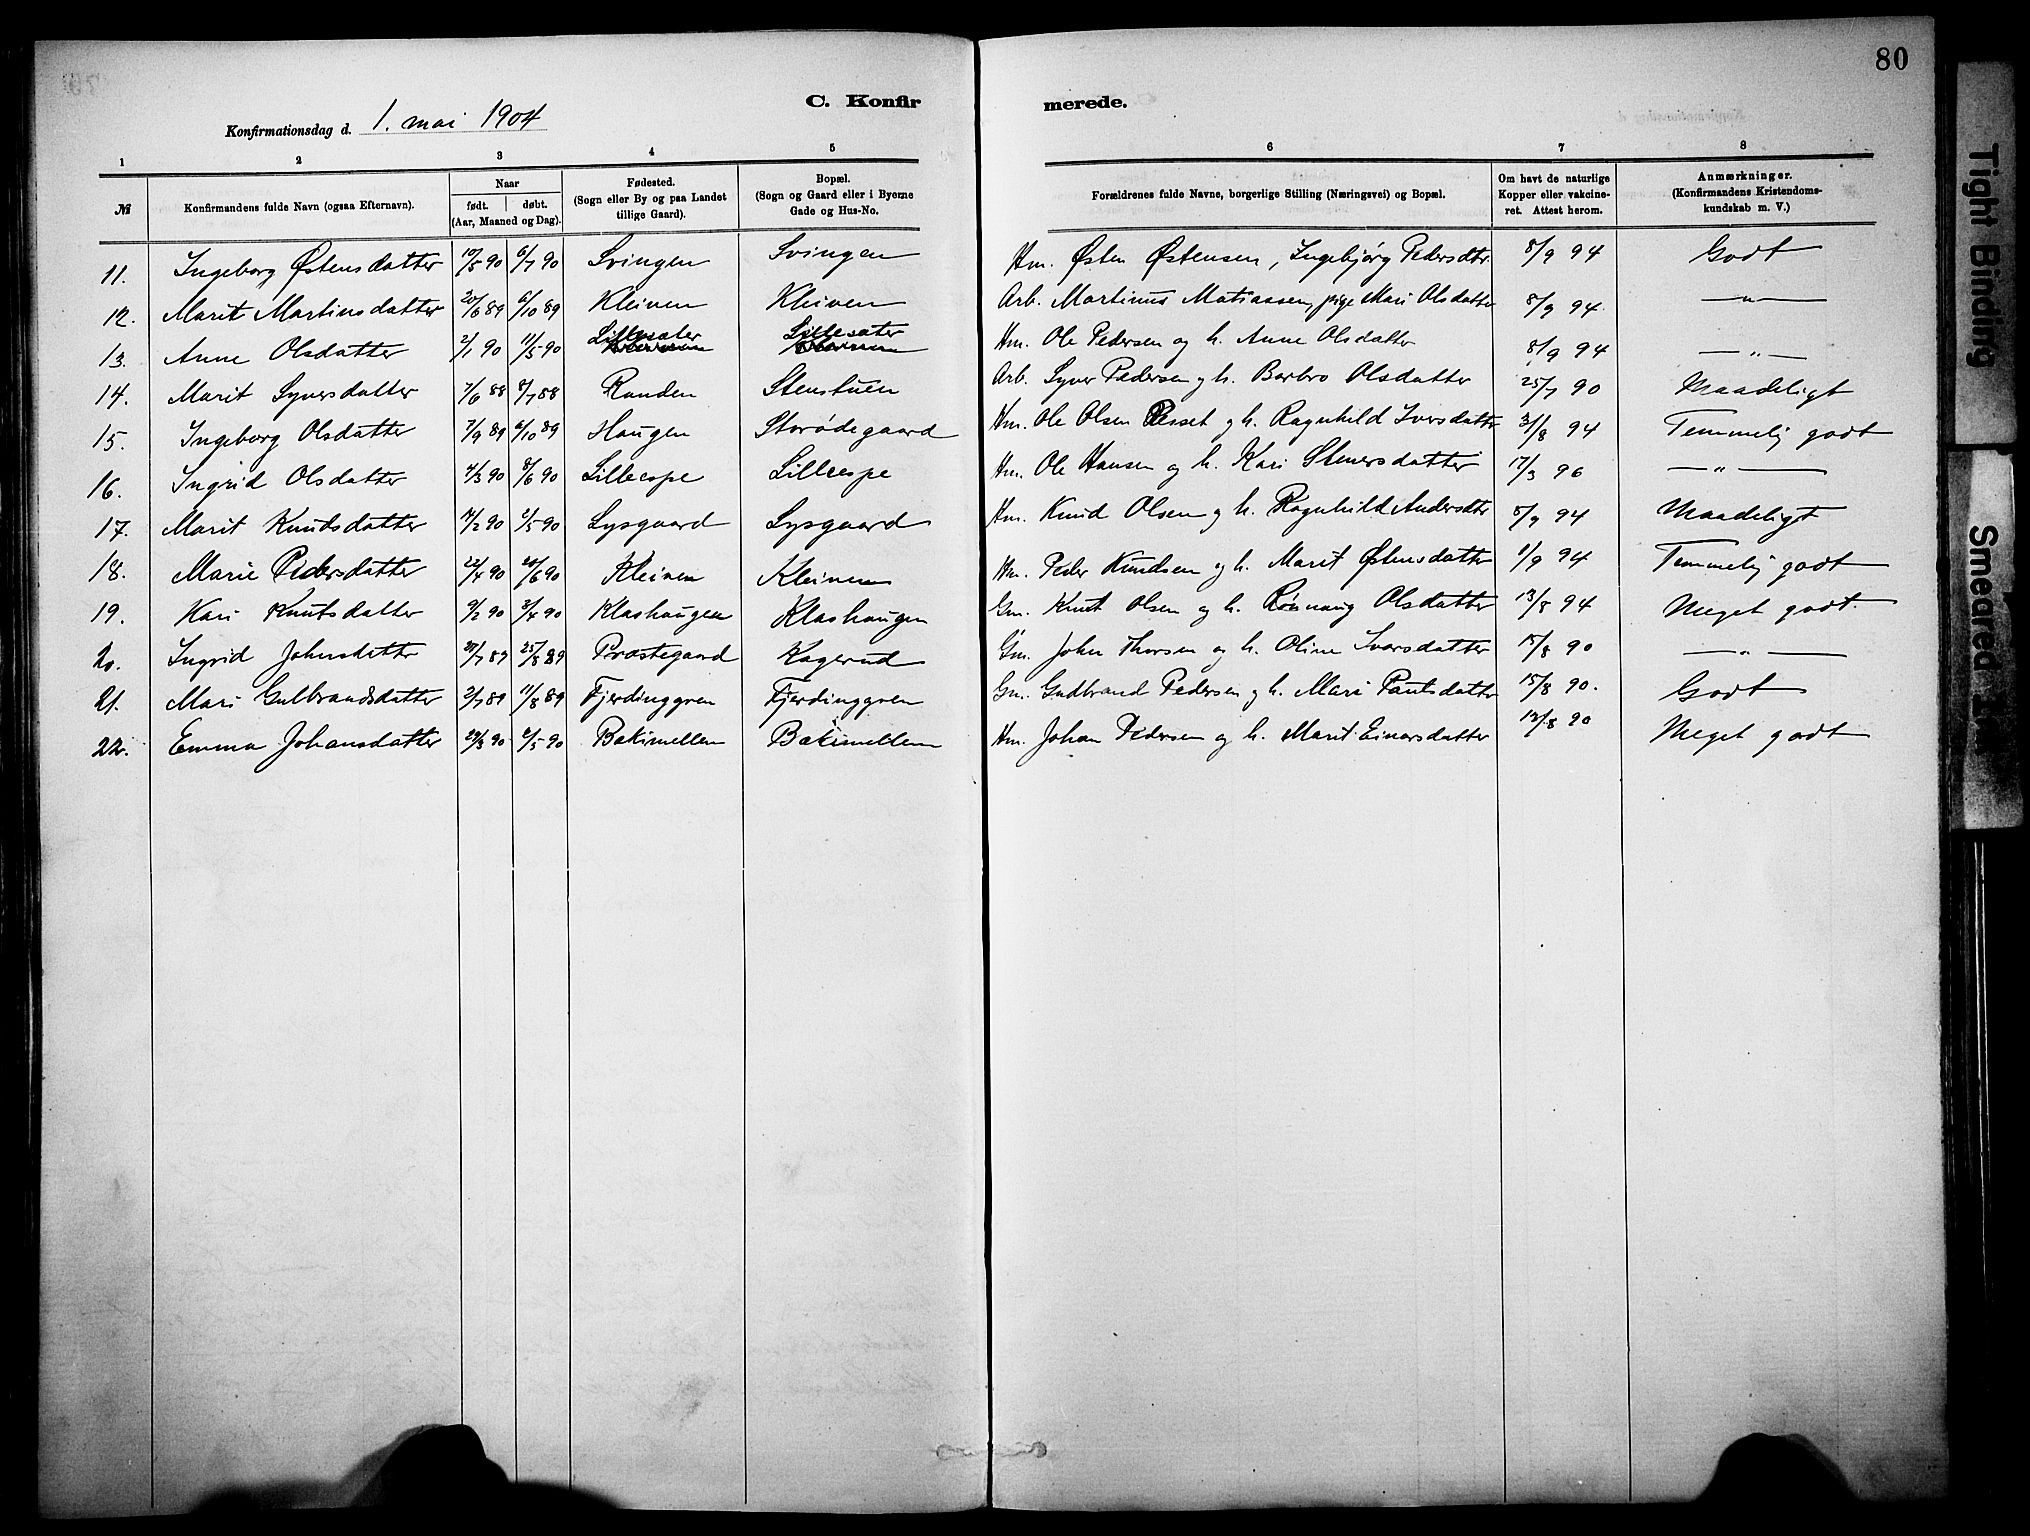 80
C. Konfir merede.
Konfirmationsdag d. 1. mai 1904
1 2 3 4 5 6 7 8
№ Konfirmandens fulde Navn (ogsaa Efternavn). Naar født. døbt. (Aar, Maaned og Dag). Fødested. (Sogn eller By og paa Landet tillige Gaard). Bopæl. (Sogn og Gaard eller i Byerne Gade og Hus-No. Forældrenes fulde Navne, borgerlige Stilling (Næringsvei) og Bopæl. Om havt de naturlige Kopper eller vakcineret. Attest herom. Anmærkninger. (Konfirmandens Kristendomskundskab m. V.)
11. Ingeborg Østensdatter 10/5 90 6/7 90 Svingen Svingen Hm. Østen Østensen, Ingebjørg Pedersdtr. 8/9 94 Godt
12. Marit Martinsdatter 20/6 89 6/10 89 Kleiven Kleiven Arb. Martinus Matiassen, pige Mari Olsdatter 8/9 94 —"—
13. Anne Olsdatter 2/1 90 11/5 90 Lillesæter Lillesæter Hm. Ole Pedersen og h. Anne Olsdatter 8/9 94 —"—
14. Marit Syversdatter 7/6 88 8/7 88 Randen Stenstuen Arb. Syver Pedersen og h. Barbro Olsdatter 25/7 90 Maadeligt
15. Ingeborg Olsdatter 7/9 89 6/10 89 Haugen Storødegaard Hm. Ole Olsen og h. Ragnhild Iversdatter 31/8 94 Temmelig godt
16. Ingrid Olsdatter 4/3 90 8/6 90 Lilleespe Lilleespe Hm. Ole Hansen og h. Kari Stenersdatter 17/3 96 —"—
17. Marit Knutsdatter 14/2 90 /5 90 Lysgaard Lysgaard Hm. Knud Olsen og h. Ragnhild Andersdtr 8/9 94 Maadeligt
18. Marie Pedersdatter 22/4 90 /6 90 Kleiven Kleiven Hm. Peder Knudsen og h. Marit Østensdatter 1/9 94 Temmelig godt
19. Kari Knutsdatter 9/2 90 3/4 90 Klashaugen Klashaugen Gm. Knut Olsen og h. Rønnaug Olsdatter 13/8 94 Meget godt.
20. Ingrid Johnsdatter /7 89 25/8 89 Præstegaard Kagerud Gm. John Thorsen og h. Oline Ivarsdatter 15/8 90 —"—
21. Mari Gulbrandsdatter 2/7 89 11/8 89 Fjerdinggren Fjerdinggren Gm. Gudbrand Pedersen og h. Mari Paulsdatter 15/8 90. Godt
22. Emma Johansdatter 29/3 90 /5 90 Bakimellem Bakimellem Hm. Johan Pedersen og h. Marit Einarsdatter 13/8 90 Meget godt
Tight Binding
Smeared Ink